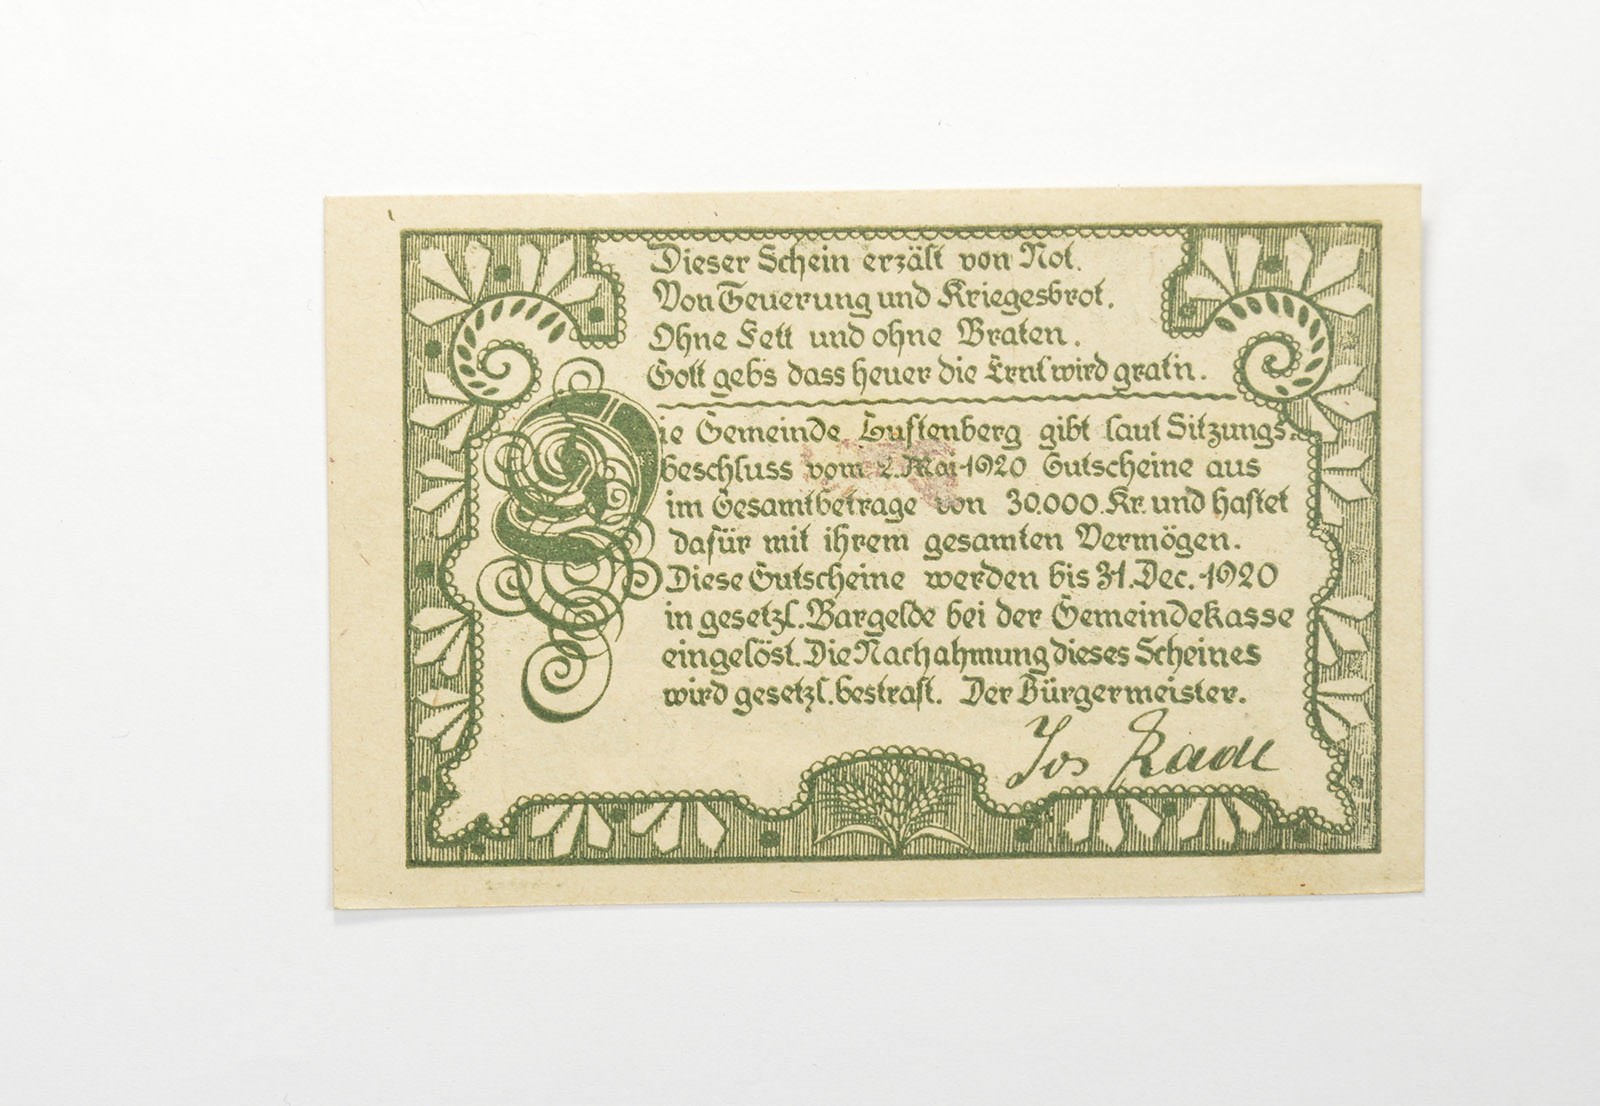 Dieser Schein erzält von Not.
Von Teuerung und Kriegesbrot.
Ohne Fett und ohne Braten.
Gott gebs dass heuer die Ernt wird gratn.
Die Gemeinde Lustenberg gibt laut Sitzungs-
beschluss vom 2. Mai 1920 Gutscheine aus
im Gesamtbetrage von 30.000 Kr. und haftet
dafür mit ihrem gesamten Vermögen.
Diese Gutscheine werden bis 31. Dec. 1920
in gesetzl. Bargelde bei der Gemeindekasse
eingelöst. Die Nachahmung dieses Scheines
wird gesetzl. bestraft. Der Bürgermeister.
Jos